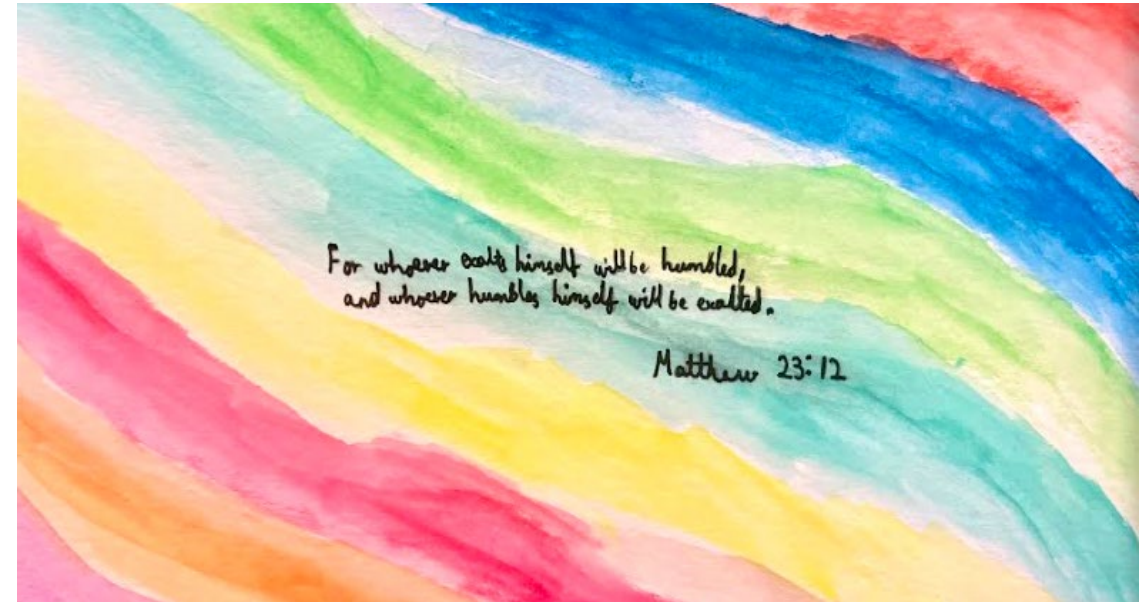 For whoever exalts himself will be humbled,
and whoever humbles himself will be exalted.
Matthew 23:12